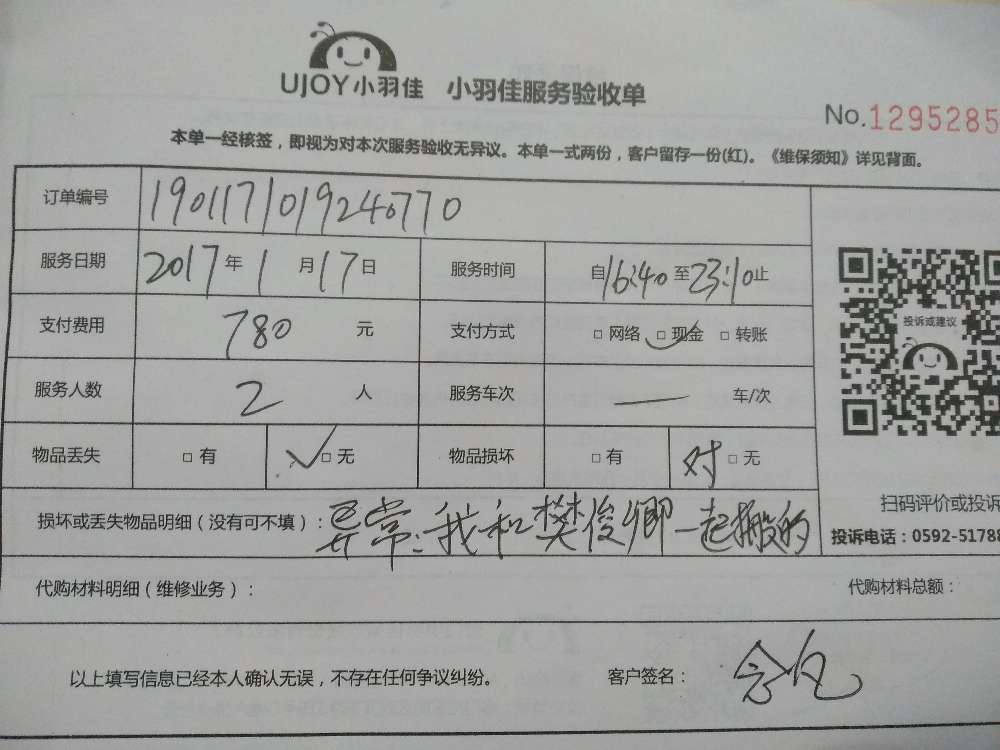 UJOY小羽佳 小羽佳服务验收单
No.1295285
本单一经核签，即视为对本次服务验收无异议。本单一式两份，客户留存一份(红)。《维保须知》详见背面。
订单编号 1901171019240770
服务日期 2017年1月17日 服务时间 自16:40至23:10止
投诉或建议
支付费用 780 元 支付方式 □网络 □现金 □转账
服务人数 2 人 服务车次 — 车/次
物品丢失 □有 ✓□无 物品损坏 □有 对□无
扫码评价或投诉
损坏或丢失物品明细（没有可不填）：异常：我和樊俊卿一起搬的
投诉电话：0592-5178
代购材料明细（维修业务）： 代购材料总额：
以上填写信息已经本人确认无误，不存在任何争议纠纷。 客户签名：